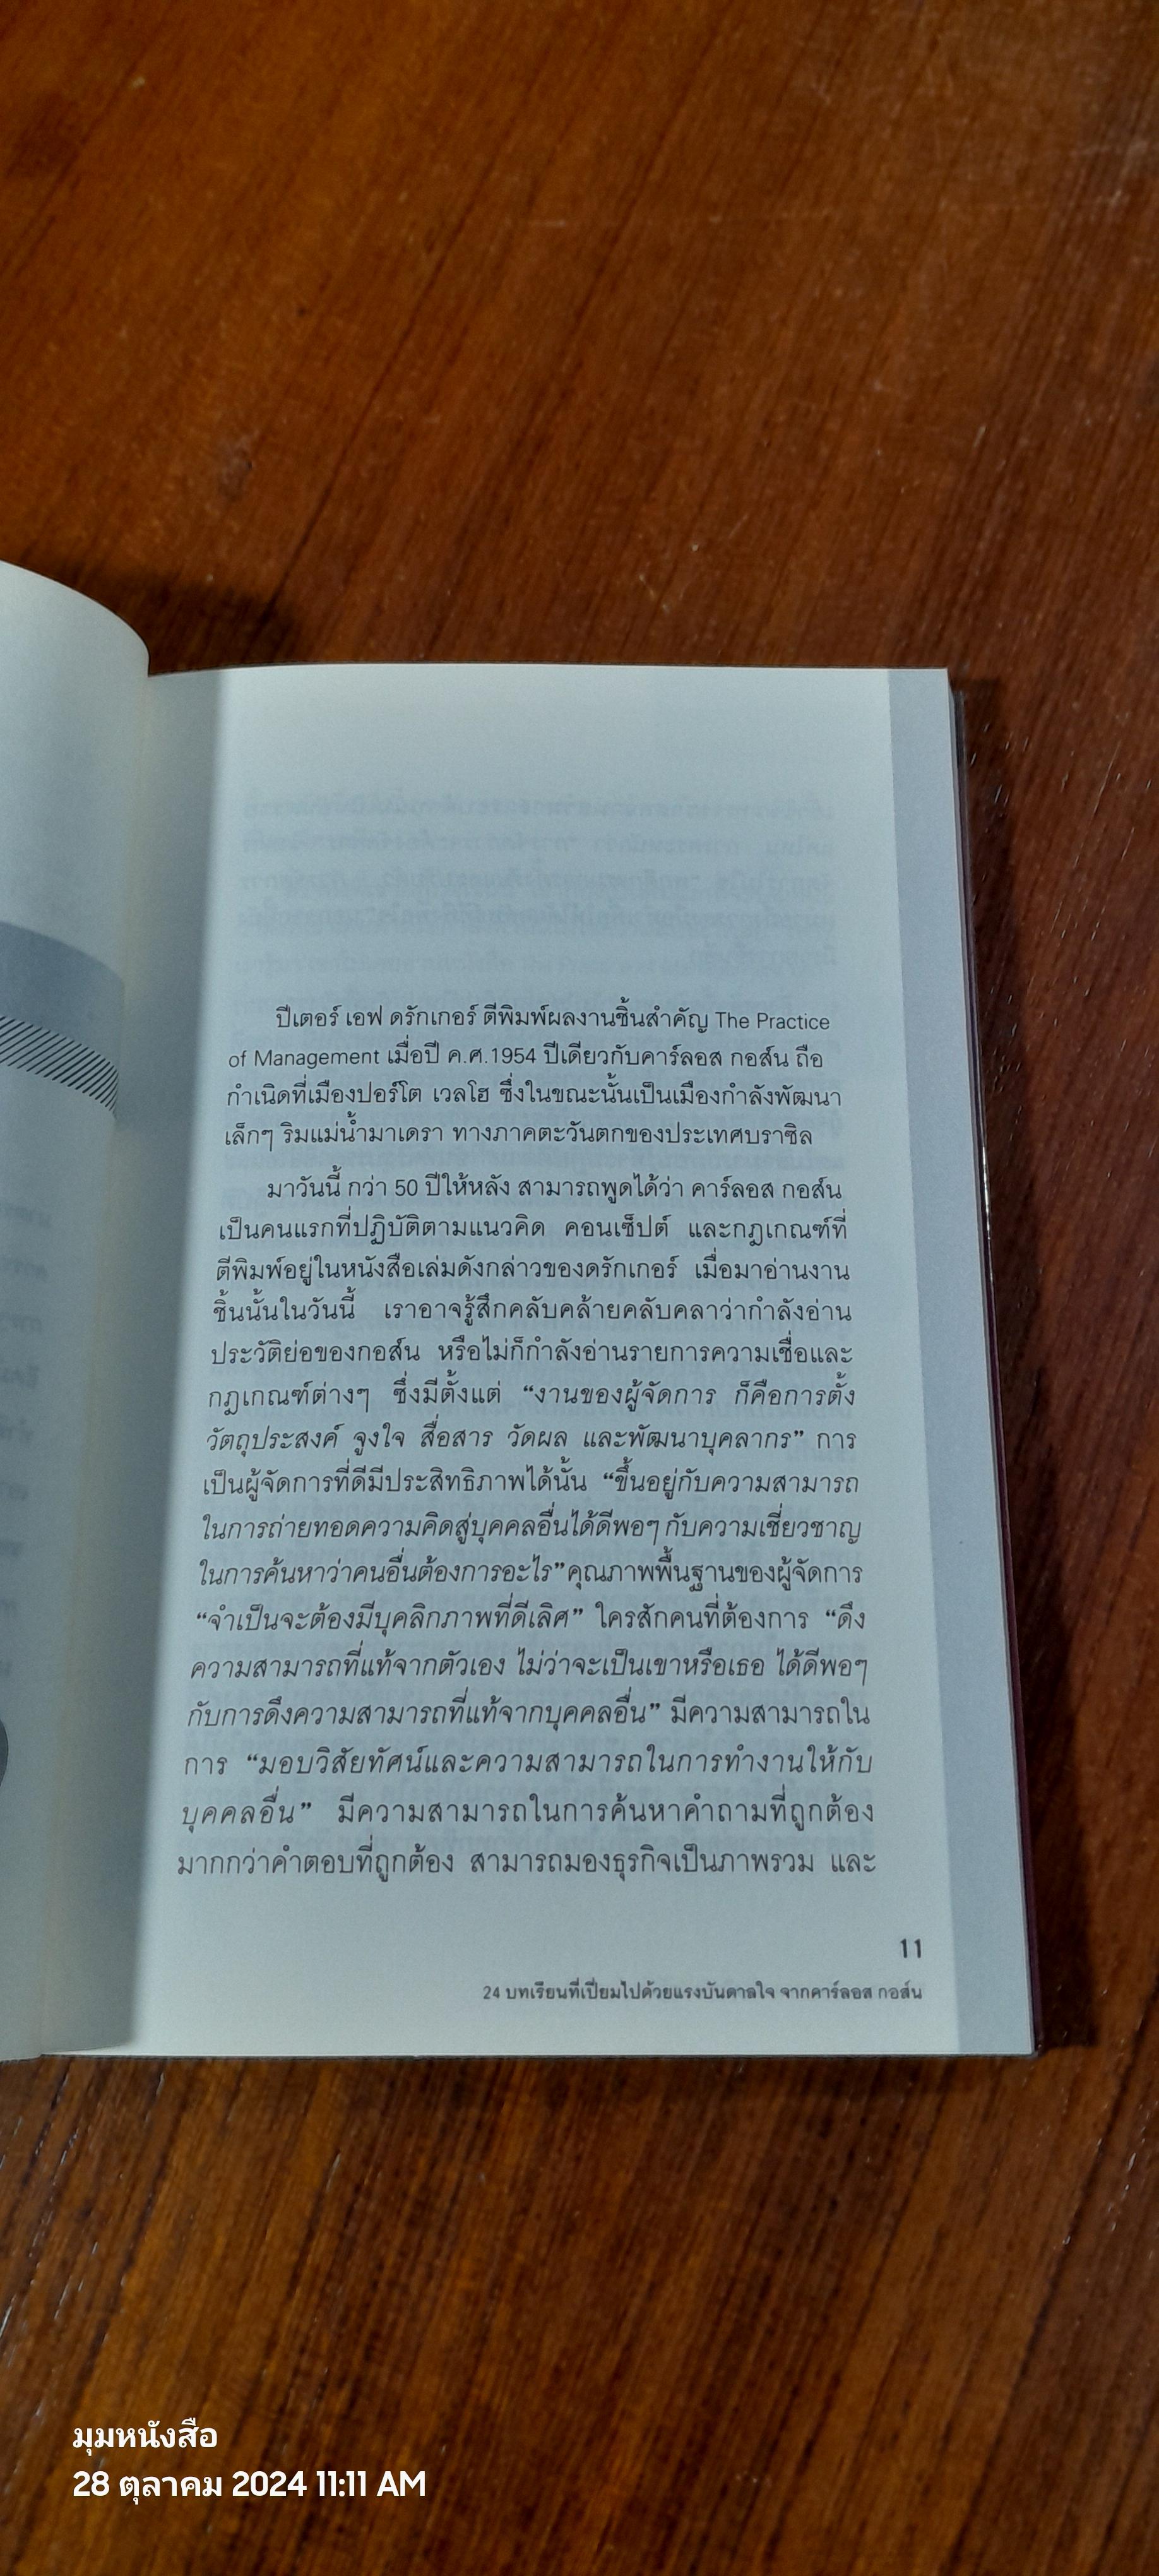 ปีเตอร์ เอฟ ดรักเกอร์ ตีพิมพ์ผลงานชิ้นสำคัญ The Practice
of Management เมื่อปี ค.ศ.1954 ปีเดียวกับคาร์ลอส กอส์น ถือ
กำเนิดที่เมืองปอร์โต เวลโฮ ซึ่งในขณะนั้นเป็นเมืองกำลังพัฒนา
เล็กๆ ริมแม่น้ำมาเดรา ทางภาคตะวันตกของประเทศบราซิล
มาวันนี้ กว่า 50 ปีให้หลัง สามารถพูดได้ว่า คาร์ลอส กอส์น
เป็นคนแรกที่ปฏิบัติตามแนวคิด คอนเซ็ปต์ และกฎเกณฑ์ที่
ตีพิมพ์อยู่ในหนังสือเล่มดังกล่าวของดรักเกอร์ เมื่อมาอ่านงาน
ชิ้นนั้นในวันนี้ เราอาจรู้สึกคลับคล้ายคลับคลาว่ากำลังอ่าน
ประวัติย่อของกอส์น หรือไม่ก็กำลังอ่านรายการความเชื่อและ
กฎเกณฑ์ต่างๆ ซึ่งมีตั้งแต่ “งานของผู้จัดการ ก็คือการตั้ง
วัตถุประสงค์ จูงใจ สื่อสาร วัดผล และพัฒนาบุคลากร” การ
เป็นผู้จัดการที่ดีมีประสิทธิภาพได้นั้น “ขึ้นอยู่กับความสามารถ
ในการถ่ายทอดความคิดสู่บุคคลอื่นได้ดีพอๆ กับความเชี่ยวชาญ
ในการค้นหาว่าคนอื่นต้องการอะไร” คุณภาพพื้นฐานของผู้จัดการ
“จำเป็นจะต้องมีบุคลิกภาพที่ดีเลิศ” ใครสักคนที่ต้องการ “ดึง
ความสามารถที่แท้จากตัวเอง ไม่ว่าจะเป็นเขาหรือเธอ ได้ดีพอๆ
กับการดึงความสามารถที่แท้จากบุคคลอื่น” มีความสามารถใน
การ “มอบวิสัยทัศน์และความสามารถในการทำงานให้กับ
บุคคลอื่น” มีความสามารถในการค้นหาคำถามที่ถูกต้อง
มากกว่าคำตอบที่ถูกต้อง สามารถมองธุรกิจเป็นภาพรวม และ
11
24 บทเรียนที่เปี่ยมไปด้วยแรงบันดาลใจ จากคาร์ลอส กอส์น
มุมหนังสือ
28 ตุลาคม 2024 11:11 AM